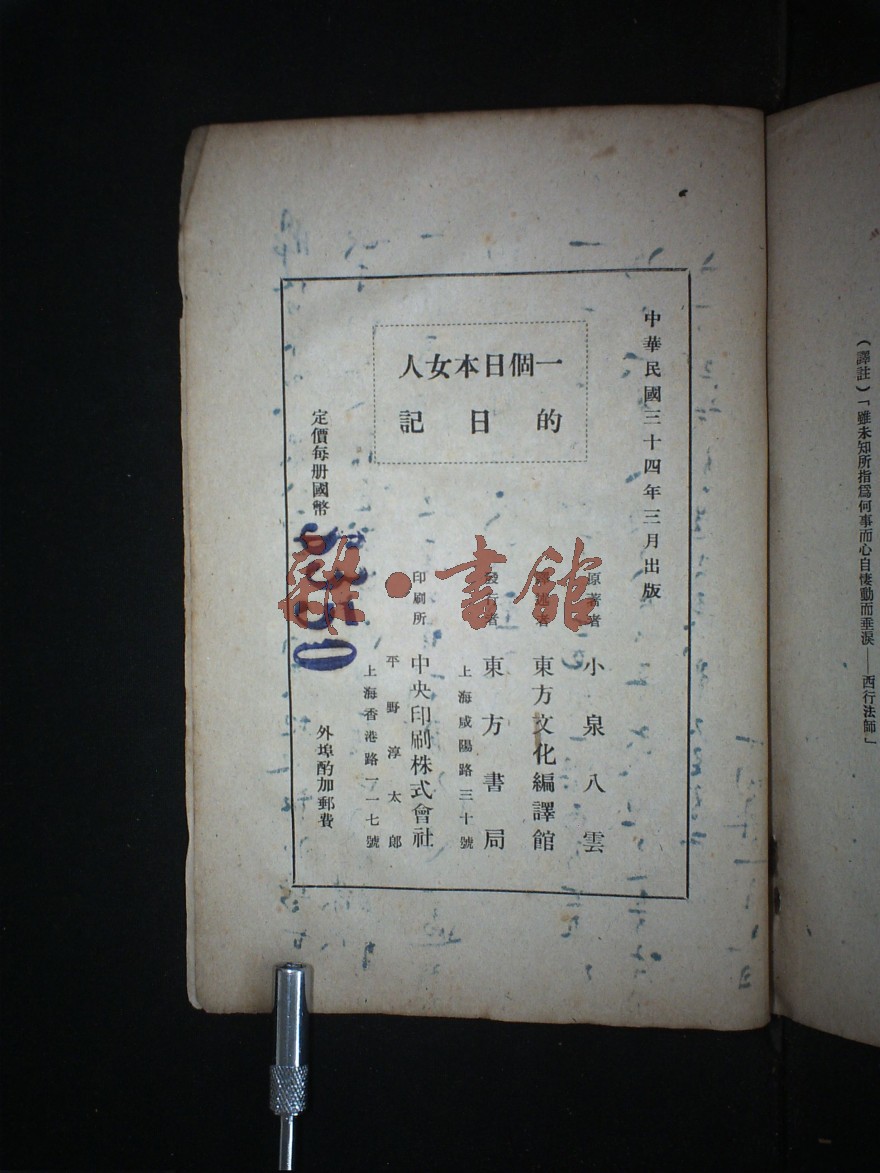 (譯註)「雖未知所指爲何事而心自悽動而垂淚——西行法師」
中華民國三十四年三月出版
一個日本女人
的日記
原著者 小泉八雲
東方文化編譯館
發行者 東方書局
上海咸陽路三十號
印刷所 中央印刷株式會社
平野淳太郎
上海香港路一一七號
定價每册國幣
外埠酌加郵費
雜·書館